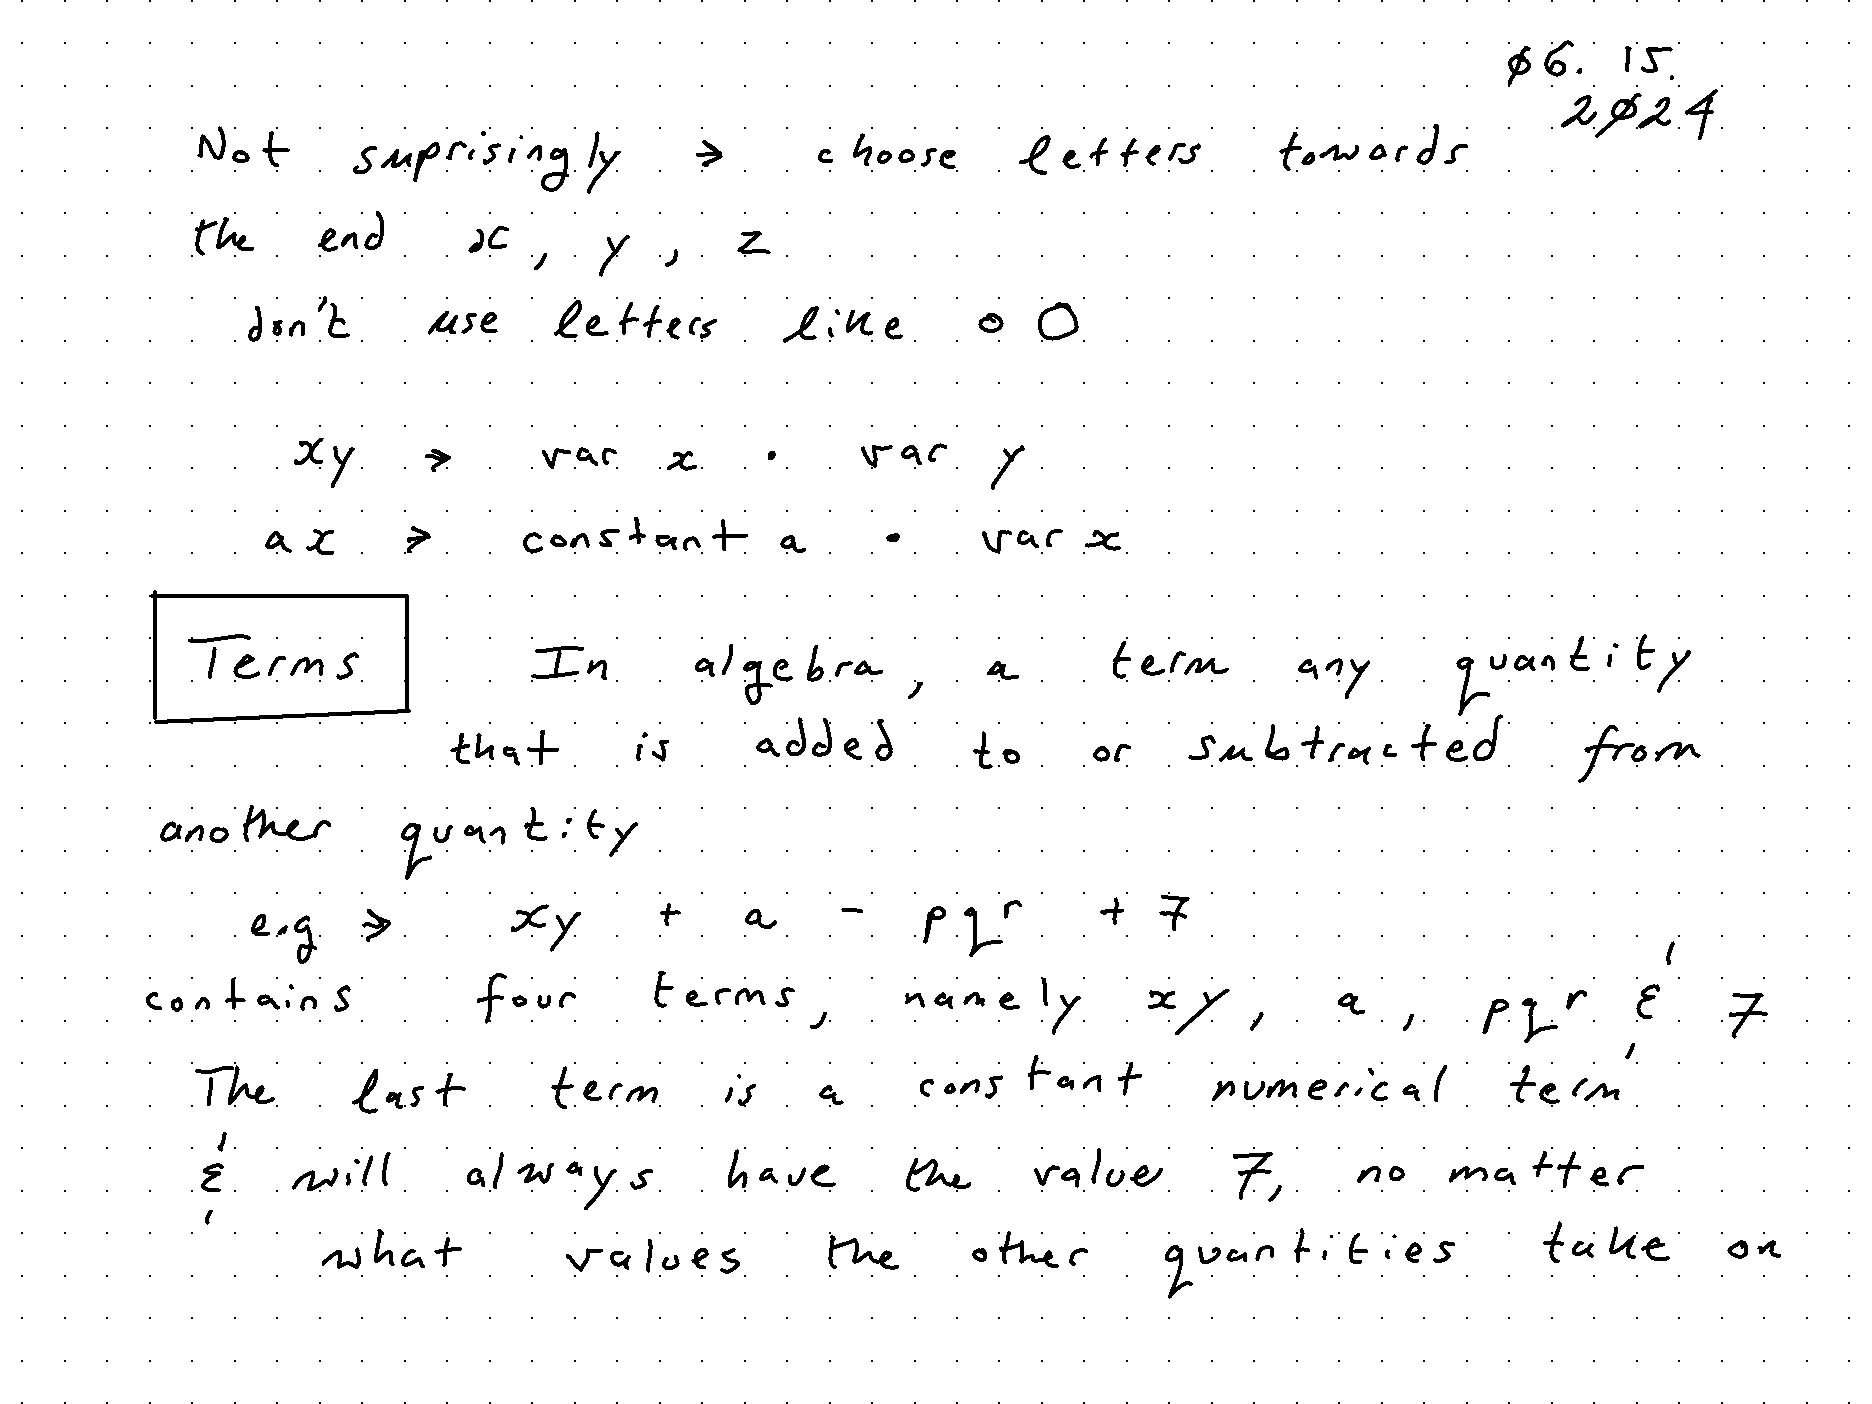 ø6. 15.
2ø24
Not suprisingly → choose letters towards
the end x, y, z
don't use letters like o O
xy → var x · var y
ax → constant a · var x
Terms In algebra, a term any quantity
that is added to or subtracted from
another quantity
e.g → xy + a - pqr + 7
contains four terms, namely xy, a, pqr & 7
The last term is a constant numerical term
& will always have the value 7, no matter
what values the other quantities take on